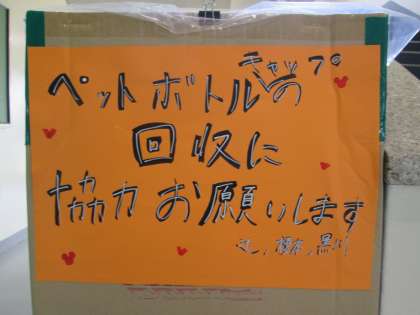 ペットボトルのキャップの
回収に
協力お願いします
辻、榎本、黒川